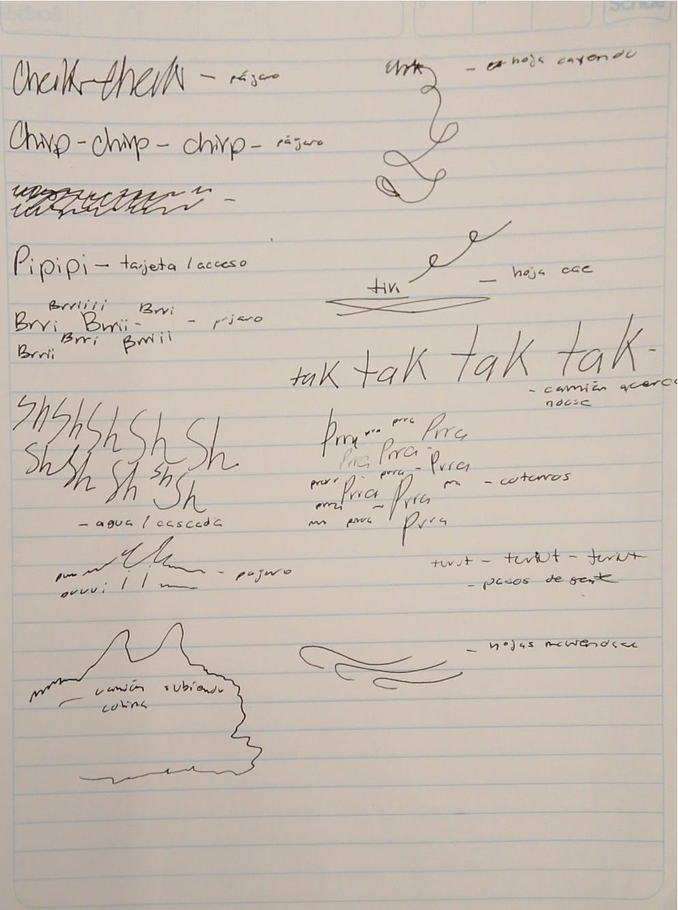 Scribe
Cheik-cheik - pájaro
Chirp-chirp- chirp- pájaro
Pipipi - tarjeta / acceso
Brriiii Brri
Brri Brrii - pájaro
Brrii Brri Brriii
Sh Sh Sh Sh Sh
Sh Sh Sh Sh Sh
- agua / cascada
- pájaro
- camión subiendo
colina
- hoja cayendo
tin - hoja cae
tak tak tak tak -
- camión acerca
ndose
Prra prra Prra
Prra Prra -
prra - Prra
Prra - Prra - cotorros
prra Prra
- pasos de gente
- hojas moviendose